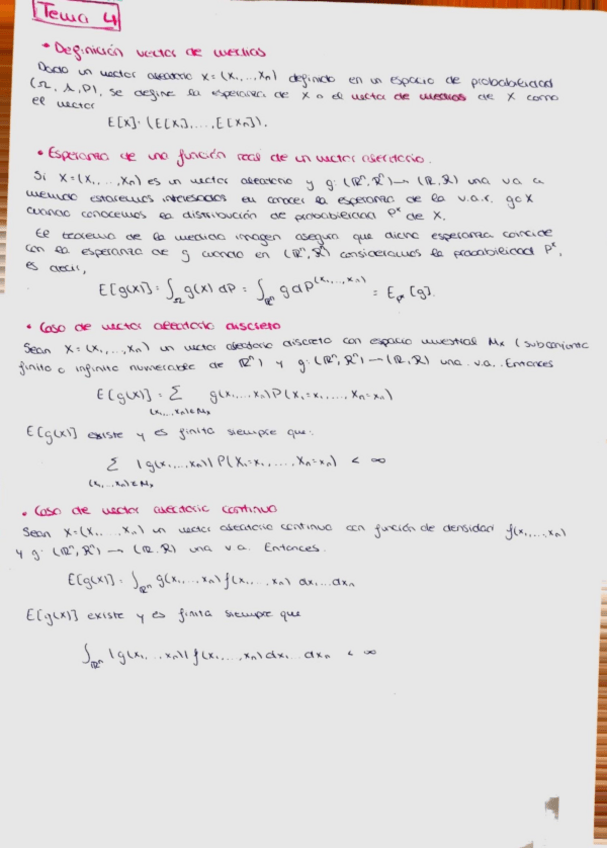 Tema 4
• Definición vector de medias
Dado un vector aleatorio X=(X₁,...,Xₙ) definido en un espacio de probabilidad
(Ω, A, P), se define la esperanza de X o el vector de medias de X como
el vector
E[X]=(E[X₁],...,E[Xₙ]).
• Esperanza de una función real de un vector aleatorio.
Si X=(X₁,...,Xₙ) es un vector aleatorio y g: (ℝⁿ, ℛⁿ)→(ℝ, ℛ) una v.a. a
menudo estaremos interesados en conocer la esperanza de la v.a.r. g∘X
cuando conocemos la distribución de probabilidad Pˣ de X.
El teorema de la medida imagen asegura que dicha esperanza coincide
con la esperanza de g cuando en (ℝⁿ, ℛⁿ) consideramos la probabilidad Pˣ,
es decir,
E[g(X)] = ∫_Ω g(X) dP = ∫_ℝⁿ g dP^(X₁,...,Xₙ) = E_Pˣ[g].
• Caso de vector aleatorio discreto
Sean X=(X₁,...,Xₙ) un vector aleatorio discreto con espacio muestral Mₓ (subconjunto
finito o infinito numerable de ℝⁿ) y g: (ℝⁿ, ℛⁿ)→(ℝ, ℛ) una v.a. Entonces
E[g(X)] = Σ g(x₁,...,xₙ) P(X₁=x₁,...,Xₙ=xₙ)
(x₁,...,xₙ)∈Mₓ
E[g(X)] existe y es finita siempre que:
Σ |g(x₁,...,xₙ)| P(X₁=x₁,...,Xₙ=xₙ) < ∞
(x₁,...,xₙ)∈Mₓ
• Caso de vector aleatorio continuo
Sean X=(X₁,...,Xₙ) un vector aleatorio continuo con función de densidad f(x₁,...,xₙ)
y g: (ℝⁿ, ℛⁿ)→(ℝ, ℛ) una v.a. Entonces.
E[g(X)] = ∫_ℝⁿ g(x₁,...,xₙ) f(x₁,...,xₙ) dx₁...dxₙ
E[g(X)] existe y es finita siempre que
∫_ℝⁿ |g(x₁,...,xₙ)| f(x₁,...,xₙ) dx₁...dxₙ < ∞